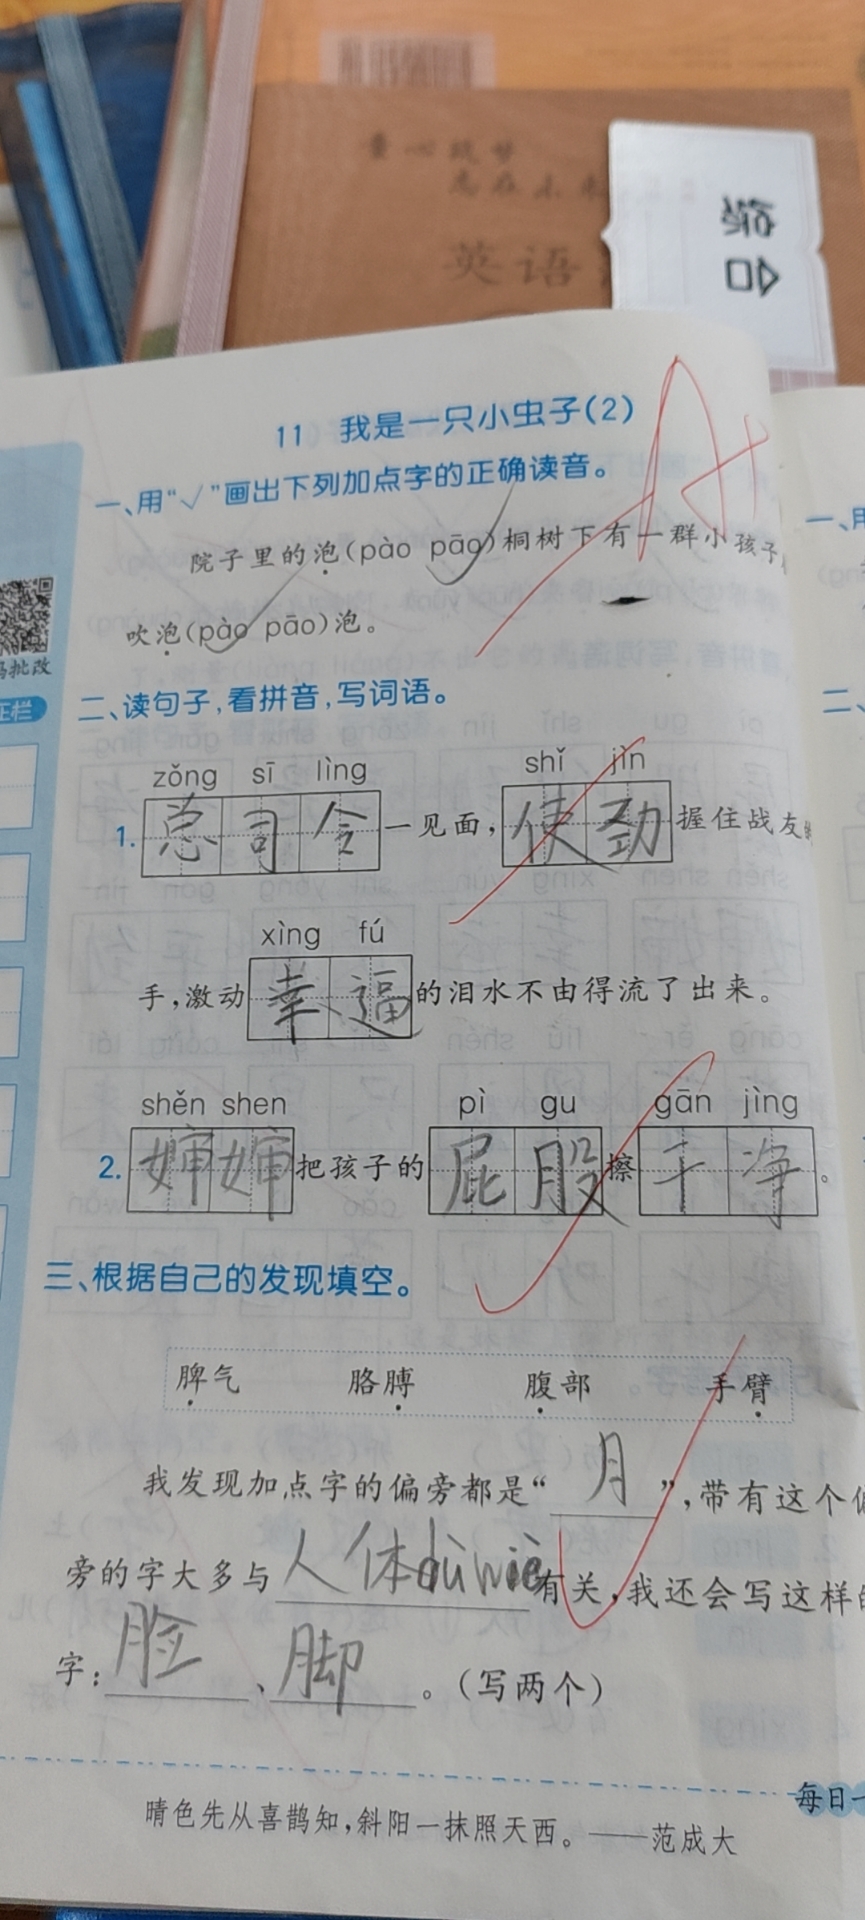 英语
11 我是一只小虫子(2)
一、用“√”画出下列加点字的正确读音。
院子里的泡(pào pāo)桐树下有一群小孩子
吹泡(pào pāo)泡。
码批改
正栏
二、读句子,看拼音,写词语。
zǒng sī lìng shǐ jìn
1. 总司令一见面,使劲握住战友
xìng fú
手,激动幸逼的泪水不由得流了出来。
shěn shen pì gu gān jìng
2. 婶婶把孩子的屁股擦干净。
三、根据自己的发现填空。
脾气 胳膊 腹部 手臂
我发现加点字的偏旁都是“月”,带有这个偏
旁的字大多与人体bù wèi有关,我还会写这样的
字:脸、脚。(写两个)
每日一
晴色先从喜鹊知,斜阳一抹照天西。——范成大
A+
一、用
二、